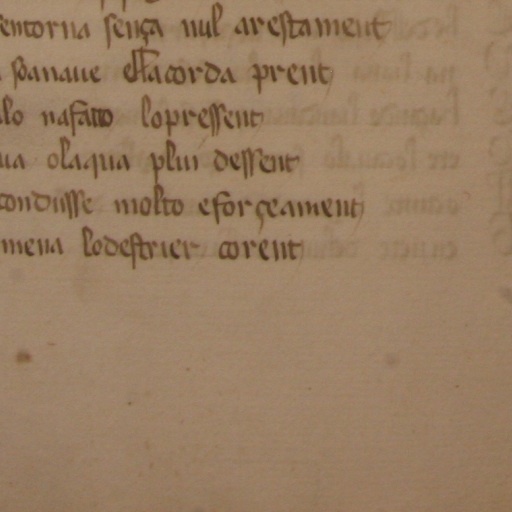 entorna sença nul arestament
lacorda prent
lo na fatto lopressent
ua olaqua plui dessent
condusse molto eforçeament
mena lodestrier corent